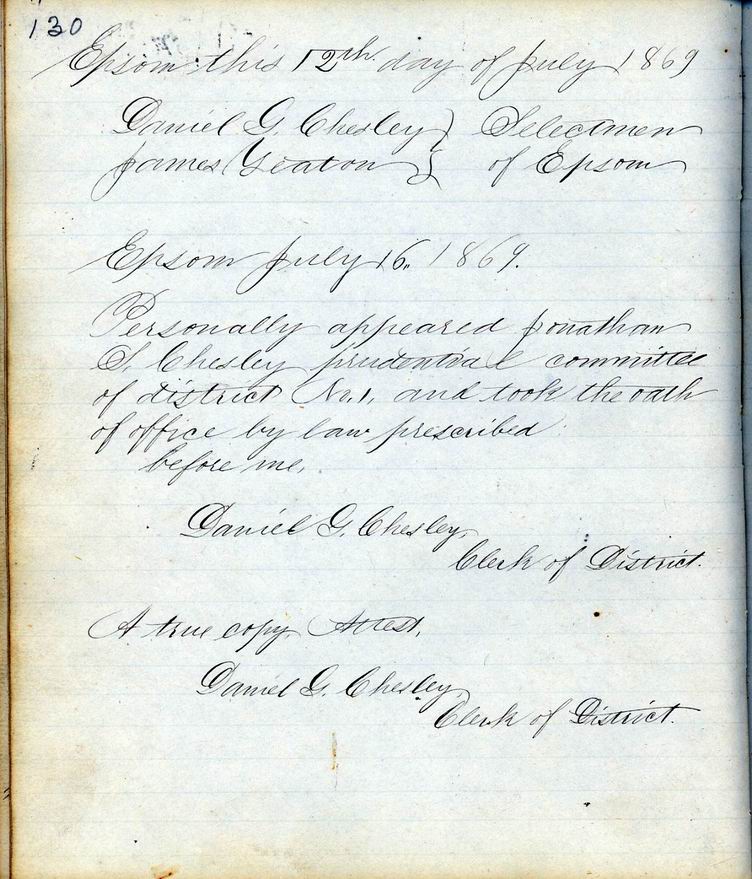 130
Epsom this 12th day of July 1869
Daniel G. Chesley } Selectmen
James Yeaton } of Epsom
Epsom July 16. 1869.
Personally appeared Jonathan
S. Chesley prudential committee
of district No. 1, and took the oath
of office by law prescribed
before me.
Daniel G. Chesley,
Clerk of District.
A true copy. Attest,
Daniel G. Chesley
Clerk of District.